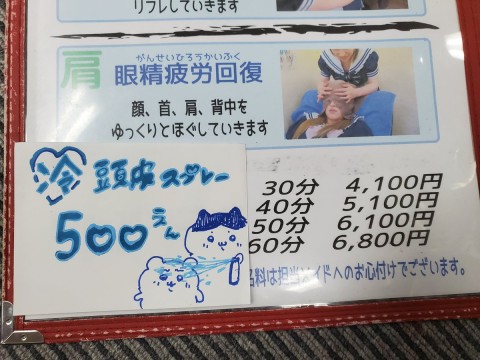 リフレしていきます
肩
がんせいひろうかいふく
眼精疲労回復
顔、首、肩、背中を
ゆっくりとほぐしていきます
冷 頭皮スプレー
500えん
30分 4,100円
40分 5,100円
50分 6,100円
60分 6,800円
名料は担当メイドへのお心付けでございます。